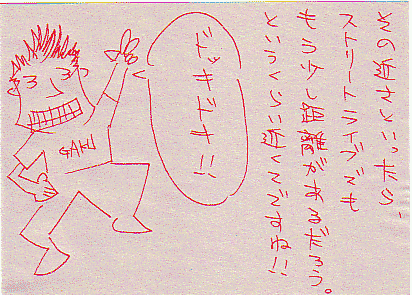 その近さといったら、
ストリートライブでも
もう少し距離があるだろう。
というくらい近くでですね!!
ドッキドキ!!
GAKU